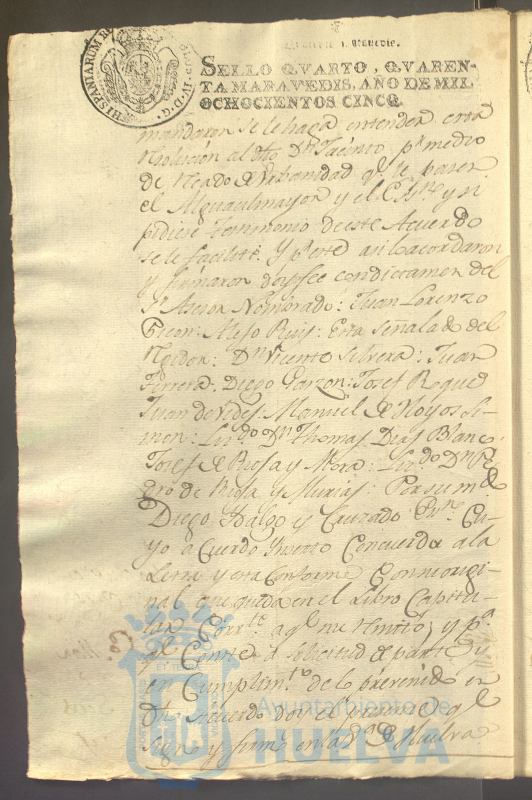 HISPANIARUM R
SELLO QVARTO, QVAREN-
TA MARAVEDIS, AÑO DE MIL
OCHOCIENTOS CINCO.
mandaron se le haga entender esta
resolucion al dho Dn Jacinto pr medio
de recado de Urbanidad qe le pasen
el Alguasilmayor y el Essno y si
pidiese testimonio de este Acuerdo
se le facilite. Y pr este asi lo acordaron
y firmaron doy fee con dictamen del
Sr Asesor Nombrado: Juan Lorenzo
Gicon: Alejo Ruis: Esta Señalado del
Regidor: Dn Vicente Silvera: Juan
Ferrera: Diego Garzon: Josef Roque
Juan de Vides: Manuel de Hoyos Li-
mon: Licdo Dn Thomas Dias Blanco:
Josef de Riosa y Mora: Licdo Dn Pe
dro de Riosa y Murias: Por su mdo
Diego Idalgo y Cruzado Essno: Cu-
yo acuerdo inserto concuerda a la
Letra y esta conforme con su origi-
nal que queda en el Libro Capitu-
lar Corrte a qe me remito; y pa
qe conste a solicitud de parte y
en Cumplimto de lo prevenido en
dho Acuerdo doy el presente qe
signo y firmo en la Va de Huelva
Ayuntamiento de
HUELVA